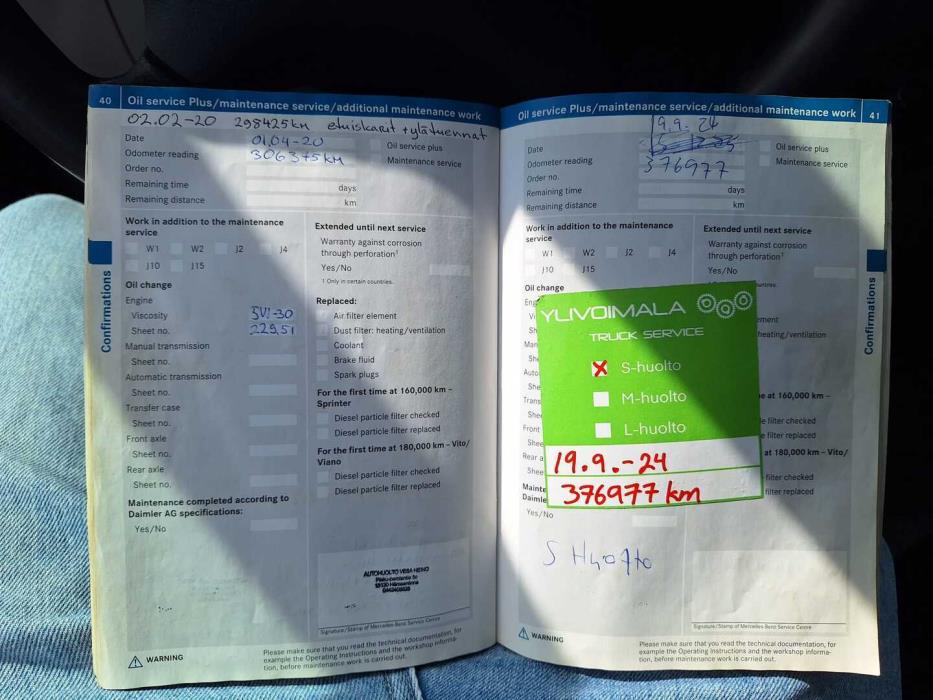 40 Oil service Plus/maintenance service/additional maintenance work
02.02-20 298425km etuiskarit + ylätuennat
Date 01.04-20
Odometer reading 306375km
Order no.
Remaining time days
Remaining distance km
Oil service plus
Maintenance service
Work in addition to the maintenance service
W1 W2 J2 J4
J10 J15
Oil change
Engine
Viscosity 5W-30
Sheet no. 229,51
Manual transmission
Sheet no.
Automatic transmission
Sheet no.
Transfer case
Sheet no.
Front axle
Sheet no.
Rear axle
Sheet no.
Maintenance completed according to
Daimler AG specifications:
Yes/No
Extended until next service
Warranty against corrosion
through perforation¹
Yes/No
¹ Only in certain countries.
Replaced:
Air filter element
Dust filter: heating/ventilation
Coolant
Brake fluid
Spark plugs
For the first time at 160,000 km –
Sprinter
Diesel particle filter checked
Diesel particle filter replaced
For the first time at 180,000 km – Vito/
Viano
Diesel particle filter checked
Diesel particle filter replaced
AUTOHUOLTO VESA HEINO
Signature/Stamp of Mercedes-Benz Service Centre
WARNING
Please make sure that you read the technical documentation, for
example the Operating Instructions and the workshop informa-
tion, before maintenance work is carried out.
Confirmations
Oil service Plus/maintenance service/additional maintenance work 41
19.9. 24
Date
Odometer reading 376977
Order no.
Remaining time days
Remaining distance km
Oil service plus
Maintenance service
Work in addition to the maintenance
service
W1 W2 J2 J4
J10 J15
Extended until next service
Warranty against corrosion
through perforation¹
Yes/No
countries.
Oil change
YLIVOIMALA
TRUCK SERVICE
S-huolto
M-huolto
L-huolto
19.9.-24
376977 km
ement
heating/ventilation
e at 160,000 km –
e filter checked
e filter replaced
at 180,000 km – Vito/
filter checked
filter replaced
Yes/No
S Huolto
Signature/Stamp of Mercedes-Benz Service Centre
WARNING
Please make sure that you read the technical documentation, for
example the Operating Instructions and the workshop informa-
tion, before maintenance work is carried out.
Confirmations